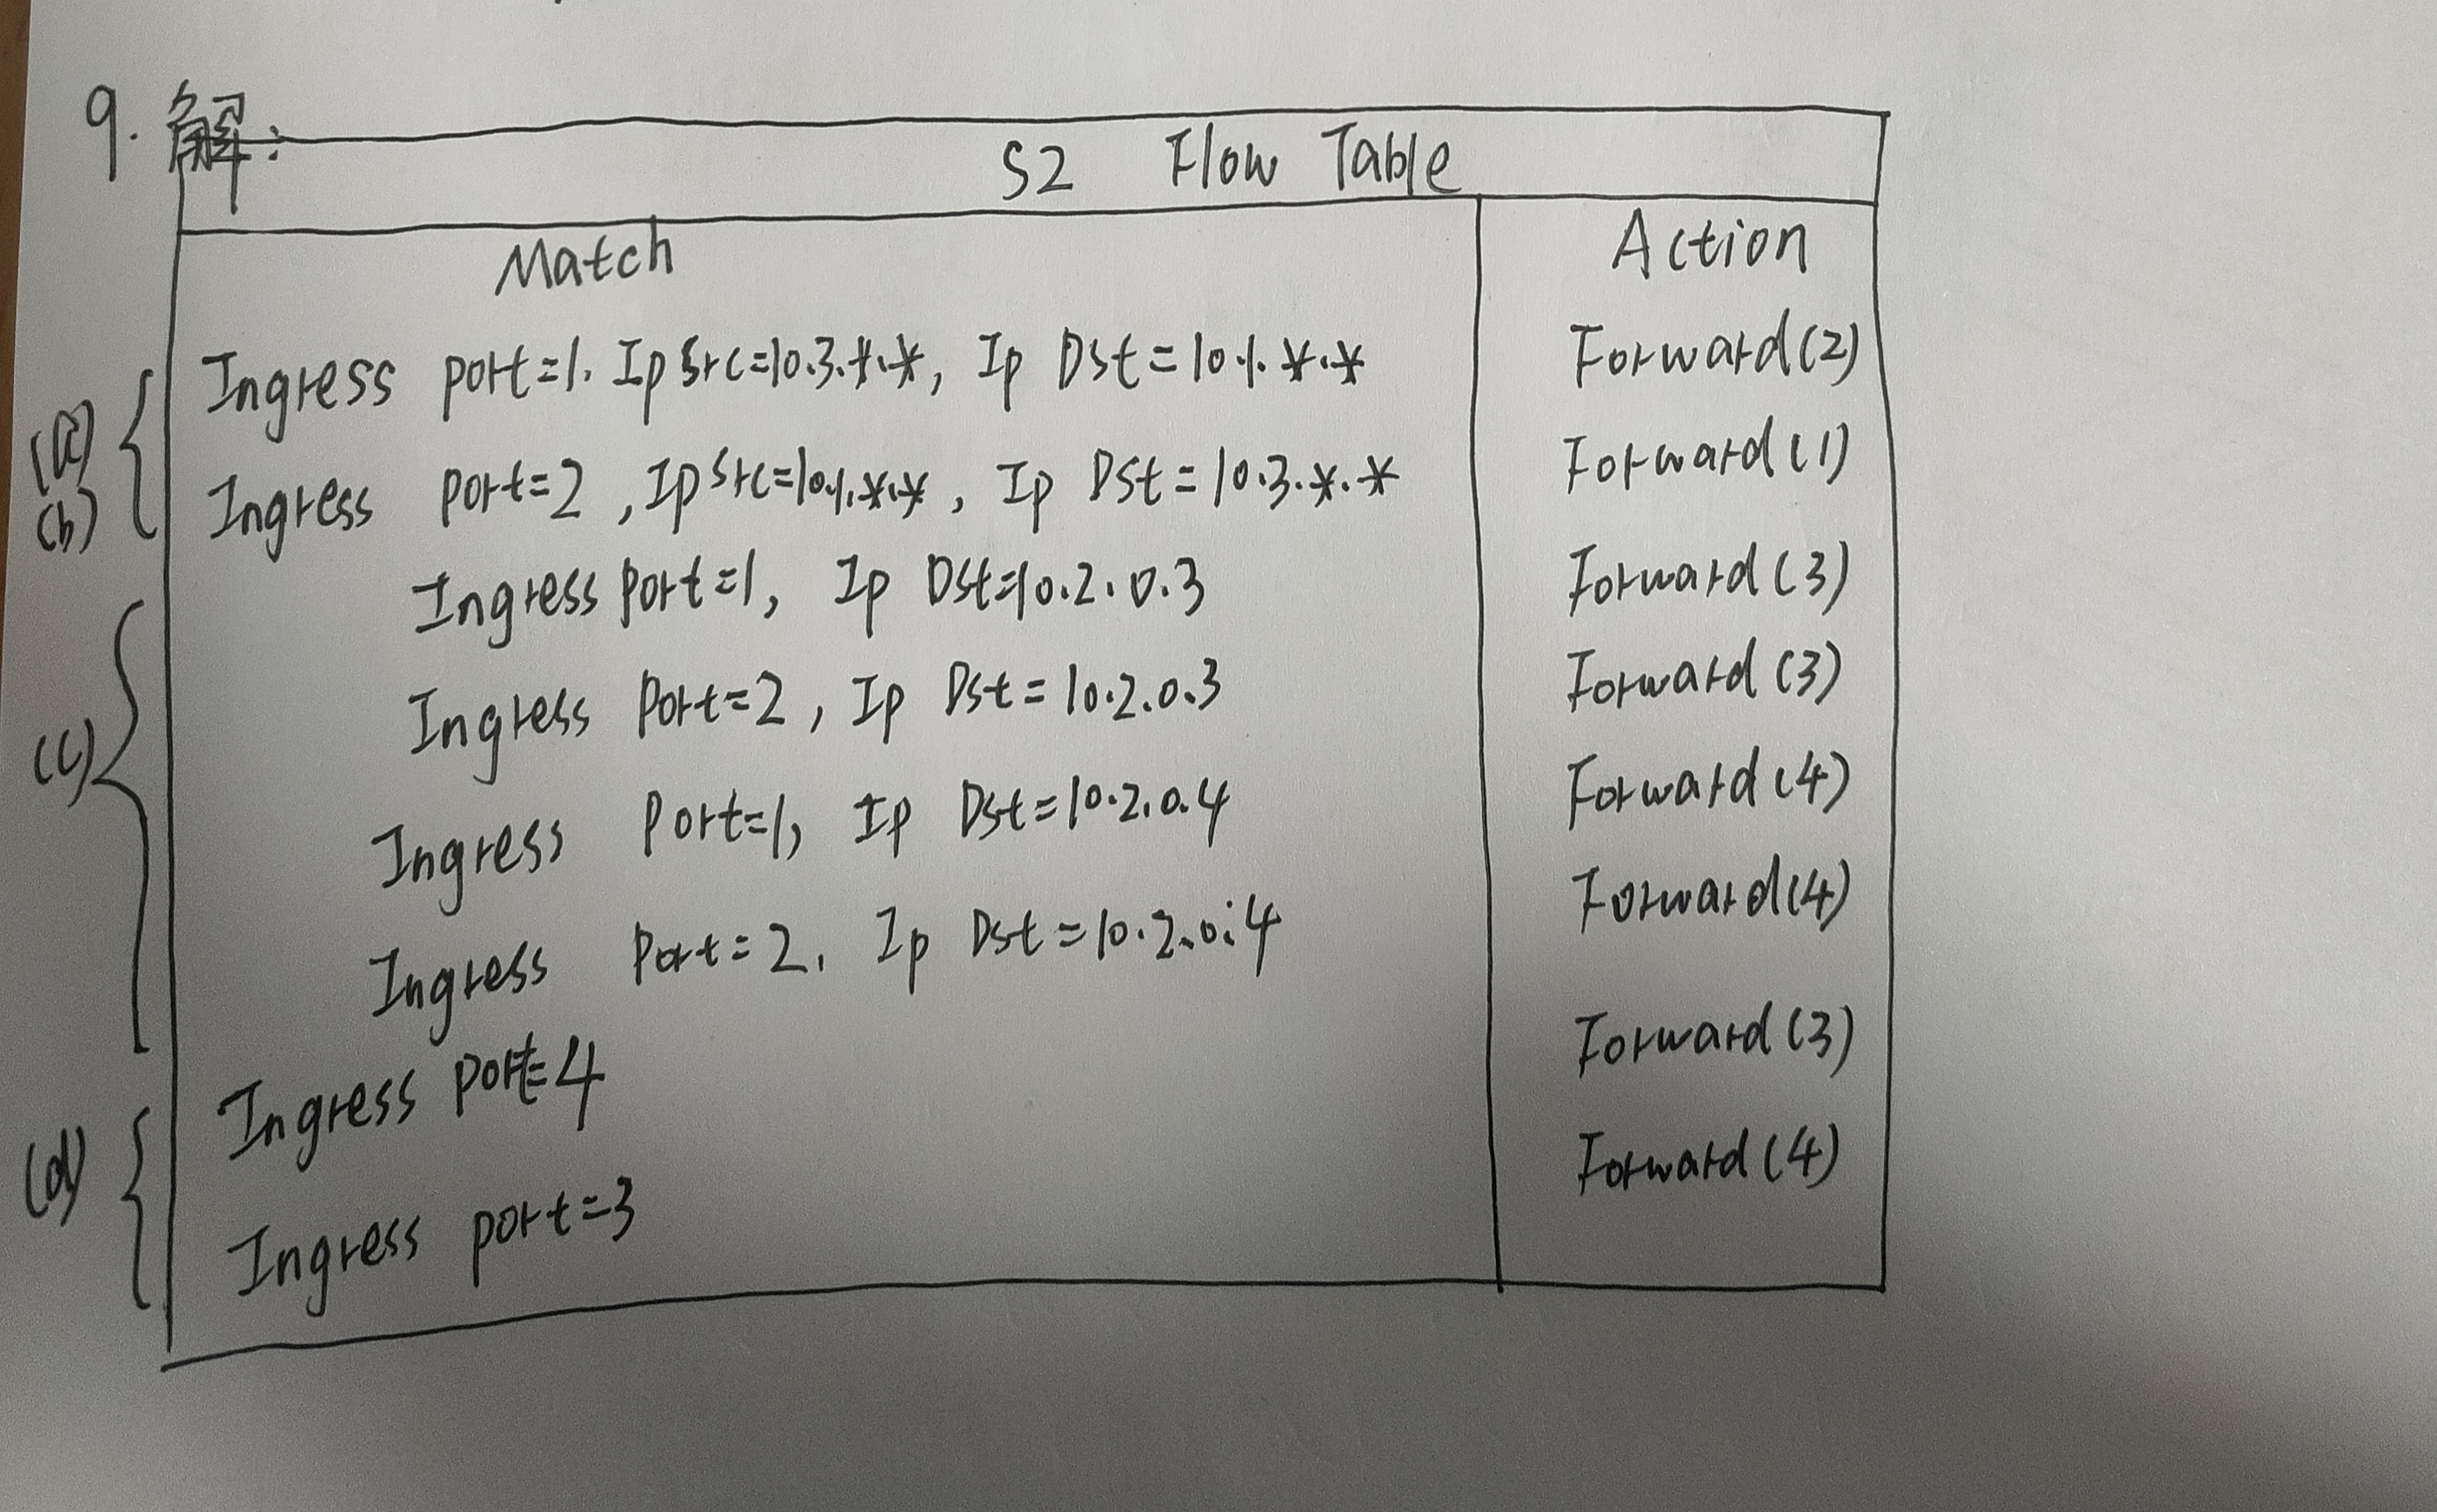 9. 解:
S2 Flow Table
Match Action
(a) Ingress port=1. Ip Src=10.3.*.*, Ip Dst=10.1.*.* Forward(2)
(b) Ingress port=2, Ip Src=10.1.*.*, Ip Dst=10.3.*.* Forward(1)
Ingress Port=1, Ip Dst=10.2.0.3 Forward(3)
Ingress Port=2, Ip Dst=10.2.0.3 Forward(3)
(c) Ingress Port=1, Ip Dst=10.2.0.4 Forward(4)
Ingress Port=2, Ip Dst=10.2.0.4 Forward(4)
Ingress port=4 Forward(3)
(d) Ingress port=3 Forward(4)